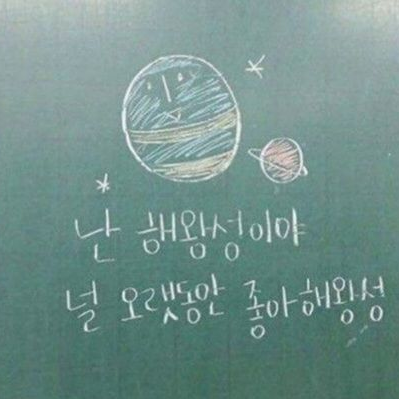 난 해왕성이야
널 오랫동안 좋아해왕성